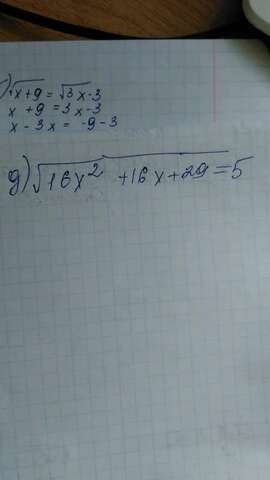 ) √x+9 = √3x-3
x + 9 = 3x-3
x - 3x = -9-3
g) √16x² +16x+29 = 5